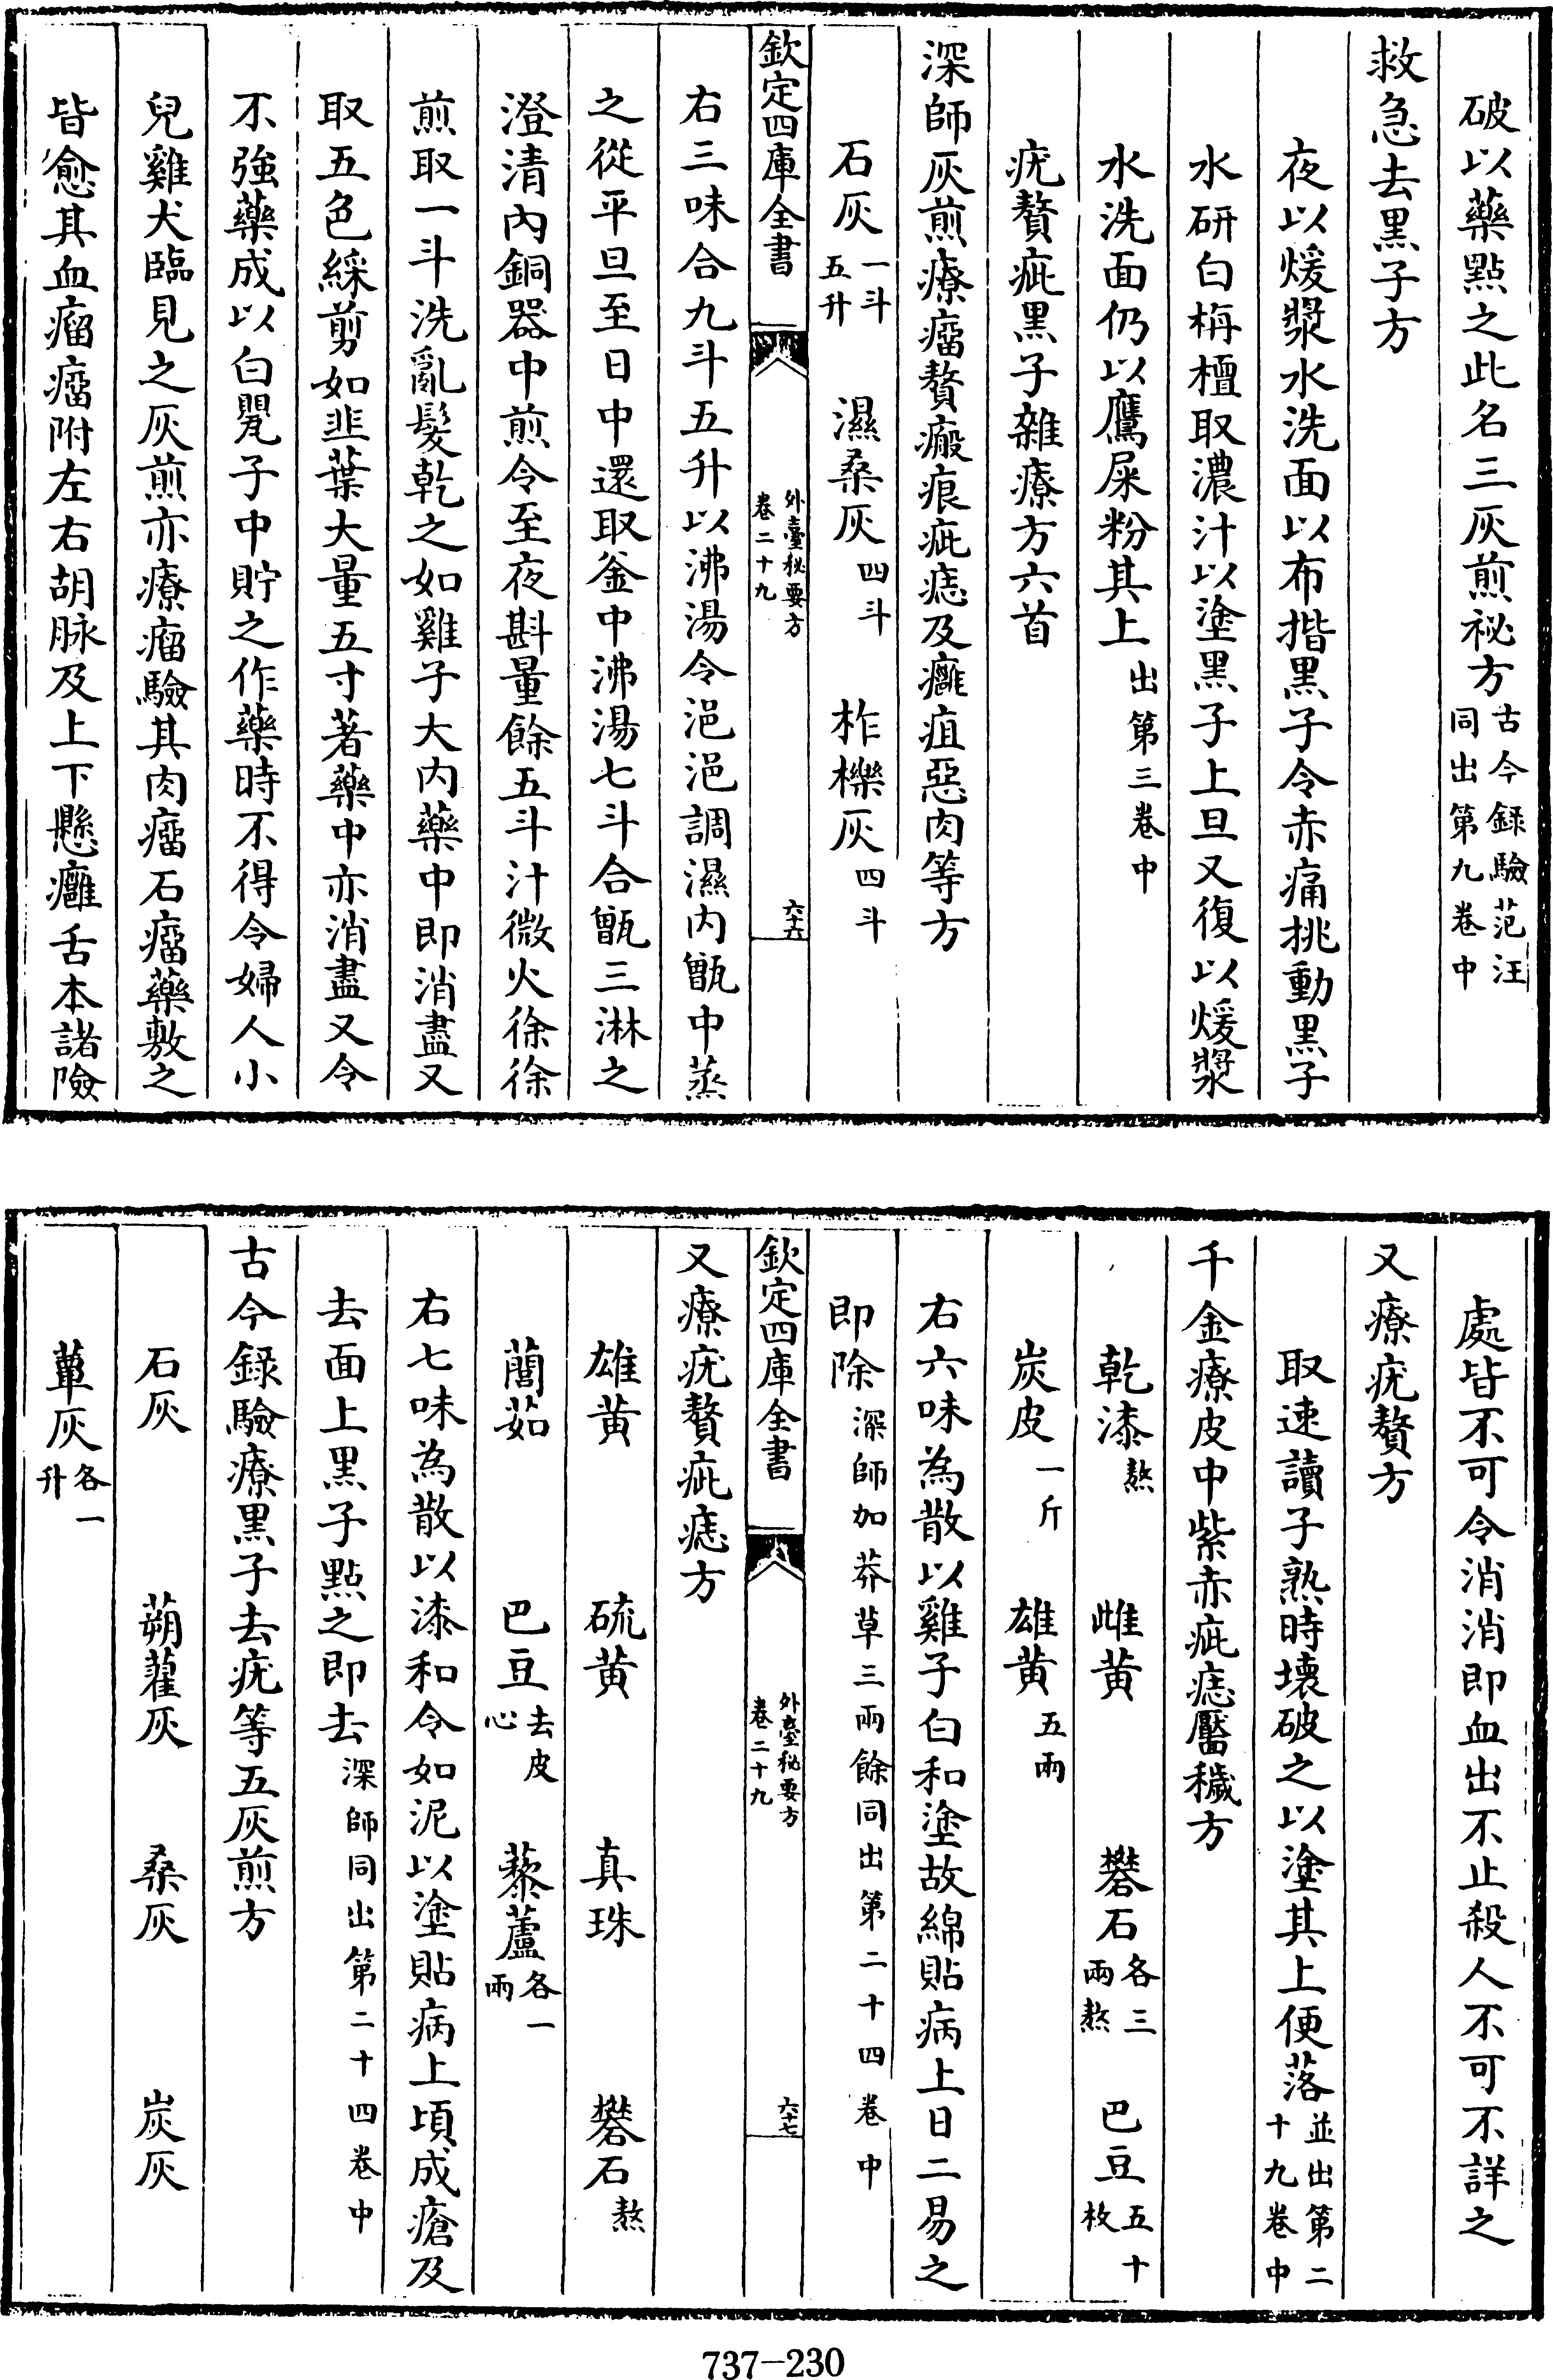 破以藥點之此名三灰煎祕方古今録驗范汪同出第九卷中
救急去黒子方
夜以煖漿水洗面以布揩黒子令赤痛挑動黒子
水研白栴檀取濃汁以塗黒子上旦又復以煖漿
水洗面仍以鷹屎粉其上出第三卷中
疣贅疵黒子雜療方六首
深師灰煎療瘤贅瘢痕疵痣及癰疽惡肉等方
石灰一斗五升 濕桑灰四斗 柞櫟灰四斗
欽定四庫全書 外臺秘要方卷二十九 六十六
右三味合九斗五升以沸湯令浥浥調濕内甑中蒸
之從平旦至日中還取釜中沸湯七斗合甑三淋之
澄清内銅器中煎令至夜斟量餘五斗汁微火徐徐
煎取一斗洗亂髮乾之如雞子大内藥中即消盡又
取五色綵剪如韭葉大量五寸著藥中亦消盡又令
不強藥成以白甖子中貯之作藥時不得令婦人小
兒雞犬臨見之灰煎亦療瘤驗其肉瘤石瘤藥敷之
皆愈其血瘤瘤附左右胡脉及上下懸癰舌本諸險
處皆不可令消消即血出不止殺人不可不詳之
又療疣贅方
取速讀子熟時壊破之以塗其上便落並出第二十九卷中
千金療皮中紫赤疵痣靨穢方
乾漆熬 雌黄 礬石各三兩熬 巴豆五十枚
炭皮一斤 雄黄五兩
右六味為散以雞子白和塗故綿貼病上日二易之
即除深師加莽草三兩餘同出第二十四卷中
欽定四庫全書 外臺秘要方卷二十九 六十七
又療疣贅疵痣方
雄黄 硫黄 真珠 礬石熬
䕡茹 巴豆去皮心 藜蘆各一兩
右七味為散以漆和令如泥以塗貼病上頃成瘡及
去面上黒子點之即去深師同出第二十四卷中
古今録驗療黒子去疣等五灰煎方
石灰 蒴藋灰 桑灰 炭灰
蕈灰各一升
737-230